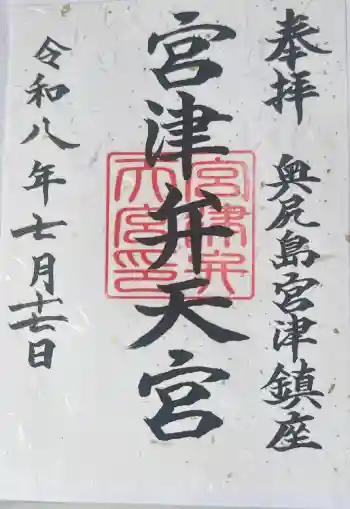 奉拝
奥尻島宮津鎮座
宮津弁天宮
宮津弁天宮印
令和八年七月十七日